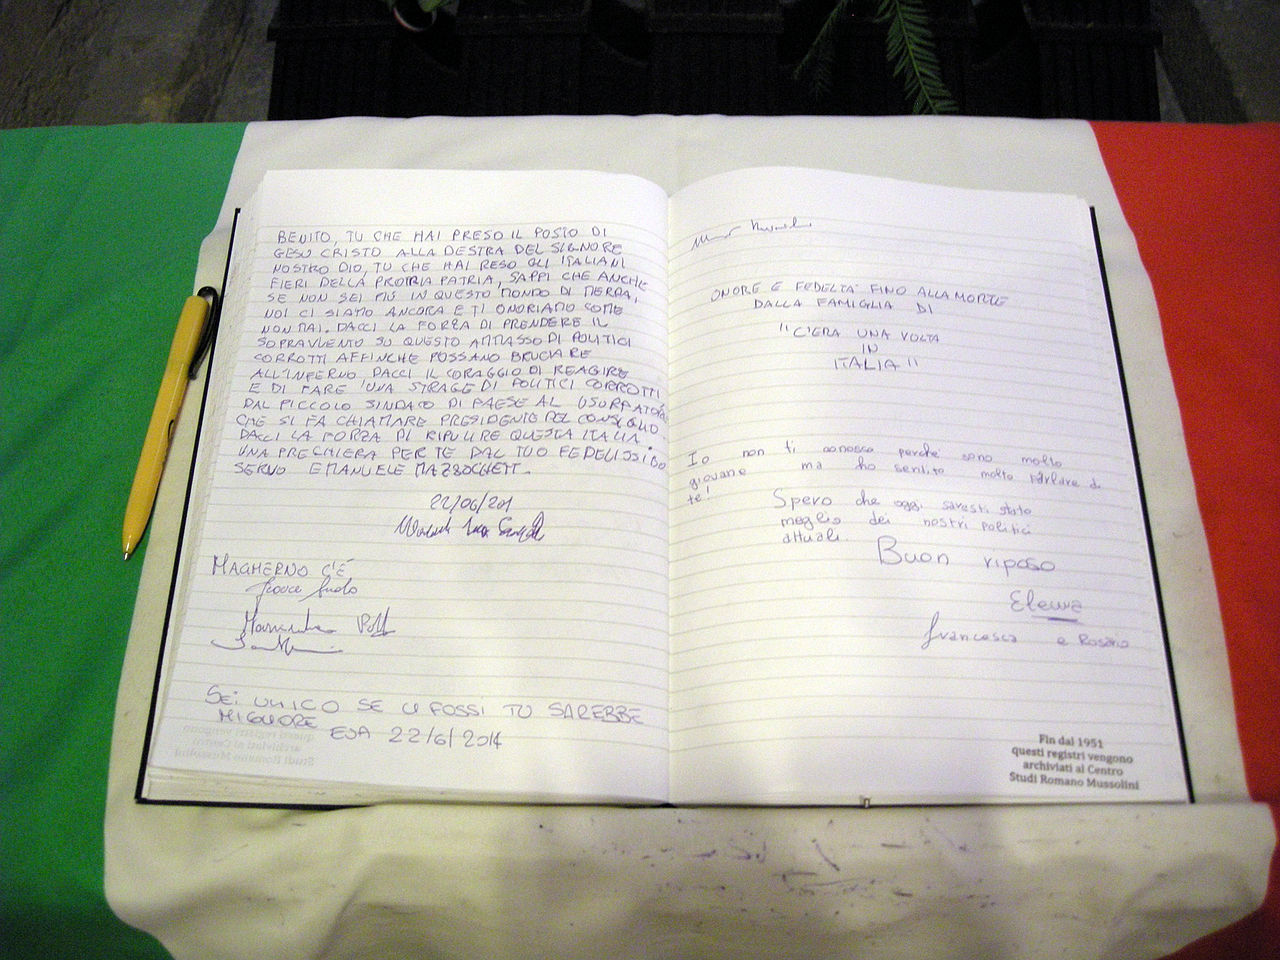 BENITO, TU CHE HAI PRESO IL POSTO DI
GESU CRISTO ALLA DESTRA DEL SIGNORE
NOSTRO DIO, TU CHE HAI RESO GLI ITALIANI
FIERI DELLA PROPRIA PATRIA, SAPPI CHE ANCHE
SE NON SEI PIÙ IN QUESTO MONDO DI MERDA,
NOI CI SIAMO ANCORA E TI ONORIAMO COME
NON MAI. DACCI LA FORZA DI PRENDERE IL
SOPRAVVENTO SU QUESTO AMMASSO DI POLITICI
CORROTTI AFFINCHE POSSANO BRUCIARE
ALL'INFERNO DACCI IL CORAGGIO DI REAGIRE
E DI FARE UNA STRAGE DI POLITICI CORROTTI
DAL PICCOLO SINDACO DI PAESE AL USURPATORE
CHE SI FA CHIAMARE PRESIDENTE DEL CONSIGLIO.
DACCI LA FORZA DI RIPULIRE QUESTA ITALIA.
UNA PREGHIERA PER TE DAL TUO FEDELISSIMO
SERVO EMANUELE
22/06/201
MAGHERNO C'É
SEI UNICO SE CI FOSSI TU SAREBBE
MIGLIORE EVA 22/6/2014
ONORE E FEDELTA' FINO ALLA MORTE
DALLA FAMIGLIA DI
"C'ERA UNA VOLTA
IN
ITALIA"
Io non ti conosco perché sono molto
giovane ma ho sentito molto parlare di
te!
Spero che oggi saresti stato
meglio dei nostri politici
attuali.
Buon riposo
Elena
Francesca e Rosario
Fin dal 1951
questi registri vengono
archiviati al Centro
Studi Romano Mussolini